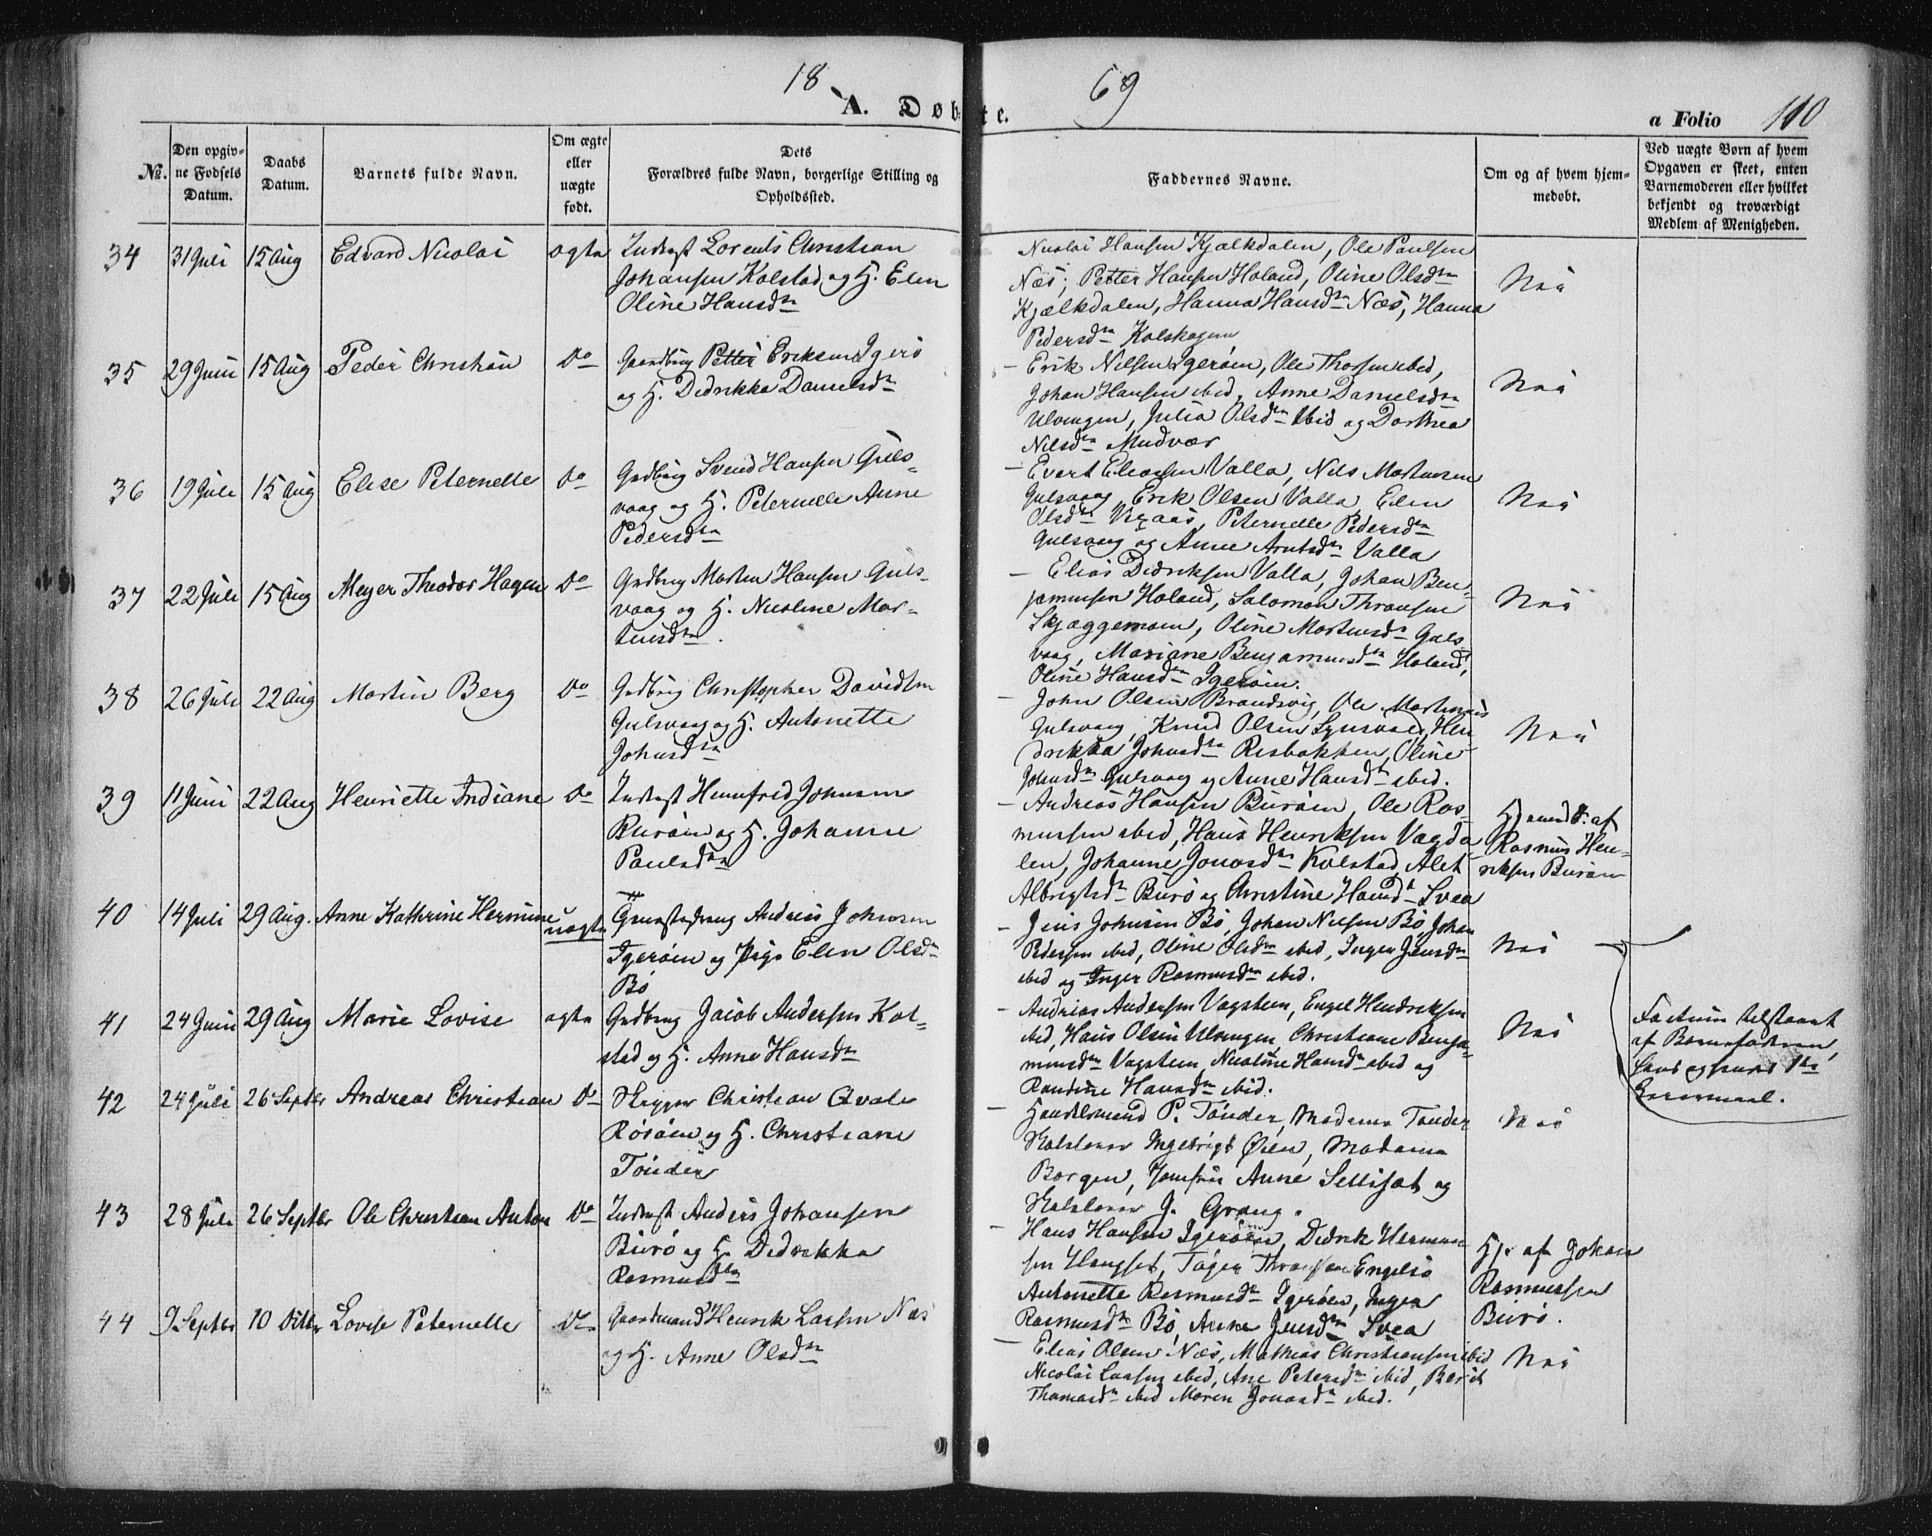 18 69
A. Døbte.
a Folio 110
No.
Den opgivne Fødsels Datum.
Daabs Datum.
Barnets fulde Navn.
Om ægte eller uægte født.
Dets Forældres fulde Navn, borgerlige Stilling og Opholdssted.
Faddernes Navne.
Om og af hvem hjemmedøbt.
Ved uægte Børn af hvem Opgaven er skeet, enten Barnemoderen eller hvilket bekjendt og troværdigt Medlem af Menigheden.
34 31 Juli 15 Aug Edvard Nicolai ægte
Inderst Lorents Christian
Johansen Kolstad og H. Elen
Oline Hansdtr
Nicolai Hansen Kjælkdalen, Ole Paulsen
Næs, Petter Hansen Holand, Oline Olsdtr
Kjælkdalen, Hanna Hansdtr Næs, Hanna
Pedersdtr Kolskogen
Nei
35 29 Juni 15 Aug Peder Christian Do
Gaardbrug Petter Eriksen Igerø
og H. Didrikka Danielsdtr
Erik Nilsen Igerøen, Ole Thossen ibid,
Johan Hansen ibid, Anne Danielsdtr
Ulvingen, Julia Olsdtr ibid og Dorthea
Nilsdtr Mudvær
Nei
36 19 Juli 15 Aug Elise Peternelle Do
Grdbrug Svend Hansen Guls-
vaag og H. Peternelle Anne
Pedersdtr
Evert Eliassen Valla, Nils Mortensen
Gulsvaag, Erik Olsen Valla, Elen
Olsdtr Vixaas, Peternelle Pedersdtr
Gulsvaag og Anne Arntsdtr Valla
Nei
37 22 Juli 15 Aug Meyer Theodor Hagen Do
Grdbrug Morten Hansen Guls-
vaag og H. Nicoline Mor-
tensdtr
Elias Didriksen Valla, Johan Ben-
jaminsen Holand, Salomon Thronsen
Skjæggemoen, Oline Mortensdtr Guls
vaag, Mariane Benjaminsdtr Holand,
Oline Hansdtr Igerøen.
Nei
38 26 Juli 22 Aug Martin Berg Do
Grdbrug Christopher Davidsen
Gulsvaag og H. Antonette
Johnsdtr
John Olsen Brandsvig, Ole Mortensen
Gulsvaag, Knud Olsen, Hen-
drikka Johnsdtr Risbakken, Oline
Johnsdtr Gulsvaag og Anne Hansdtr ibid.
Nei
39 11 Juni 22 Aug Henriette Indiane Do
Inderst Hemfred Johnsen
Burøen og H. Johanne
Paulsdtr
Andreas Hansen Burøen, Ole Ras-
mussen ibid, Hans Henriksen Vægda-
len, Johanne Jonasdtr Kolstad, Alet
Albrigtsdtr Burø og Christine Hansdtr Svea
Hjemmed. af
Rasmus Hen-
riksen Burøen
40 14 Juli 29 Aug. Anne Kathrine Hermine uægte
Andreas Johnsen
Igerøen og Pige Elen Olsdtr
Bø
Jens Johnsen Bø, Johan Nilsen Bø, Johan
Pedersen ibid, Oline Olsdtr ibid, Inger Jensdtr
ibid og Inger Rasmusdtr ibid.
Nei
41 24 Juni 29 Aug Marie Lovise ægte
Grdbrug Jacob Andersen Kol-
stad og H. Anne Hansdtr
Andreas Andersen Vagsteen, Engel Hendriksen
ibid, Hans Olsen Ulvingen, Christiane Benja-
minsdtr Vagsteen, Nicoline Hansdtr ibid og
Randine Hansdtr ibid.
Nei
Factum tilstaaet
af Barnefaderen,
42 24 Juli 26 Septbr Andreas Christian Do
Skipper Christian Qvale
Rørøen og H. Christiane
Tønder
Handelsmand P. Tønder, Madame Tønder
Ingebrigt Øien, Madame
Borgen, Jomfru Anne Sellisæt og
J. Grang.
Nei
43 28 Juli 26 Septbr Ole Christian Anton Do
Inderst Anders Johansen
Burø og H. Didrikka
Rasmusdtr
Hans Hansen Igerøen, Didrik Herman
sen Hongset, Tøger Thronsen Engelsø
Antonette Rasmusdtr Igerøen, Inger
Rasmusdtr Bø, Anne Jensdtr Svea
Hj. af Johan
Rasmussen
Burø.
44 9 Septbr 10 Octbr Lovise Peternelle Do
Gaardmand Henrik Larsen Næs
og H. Anne Olsdtr
Elias Olsen Næs, Mathias Christiansen ibid
Nicolai Larsen ibid, Ane Petersdtr ibid, Berit
Thomasdtr ibid Maren Jonasdtr ibid.
Nei